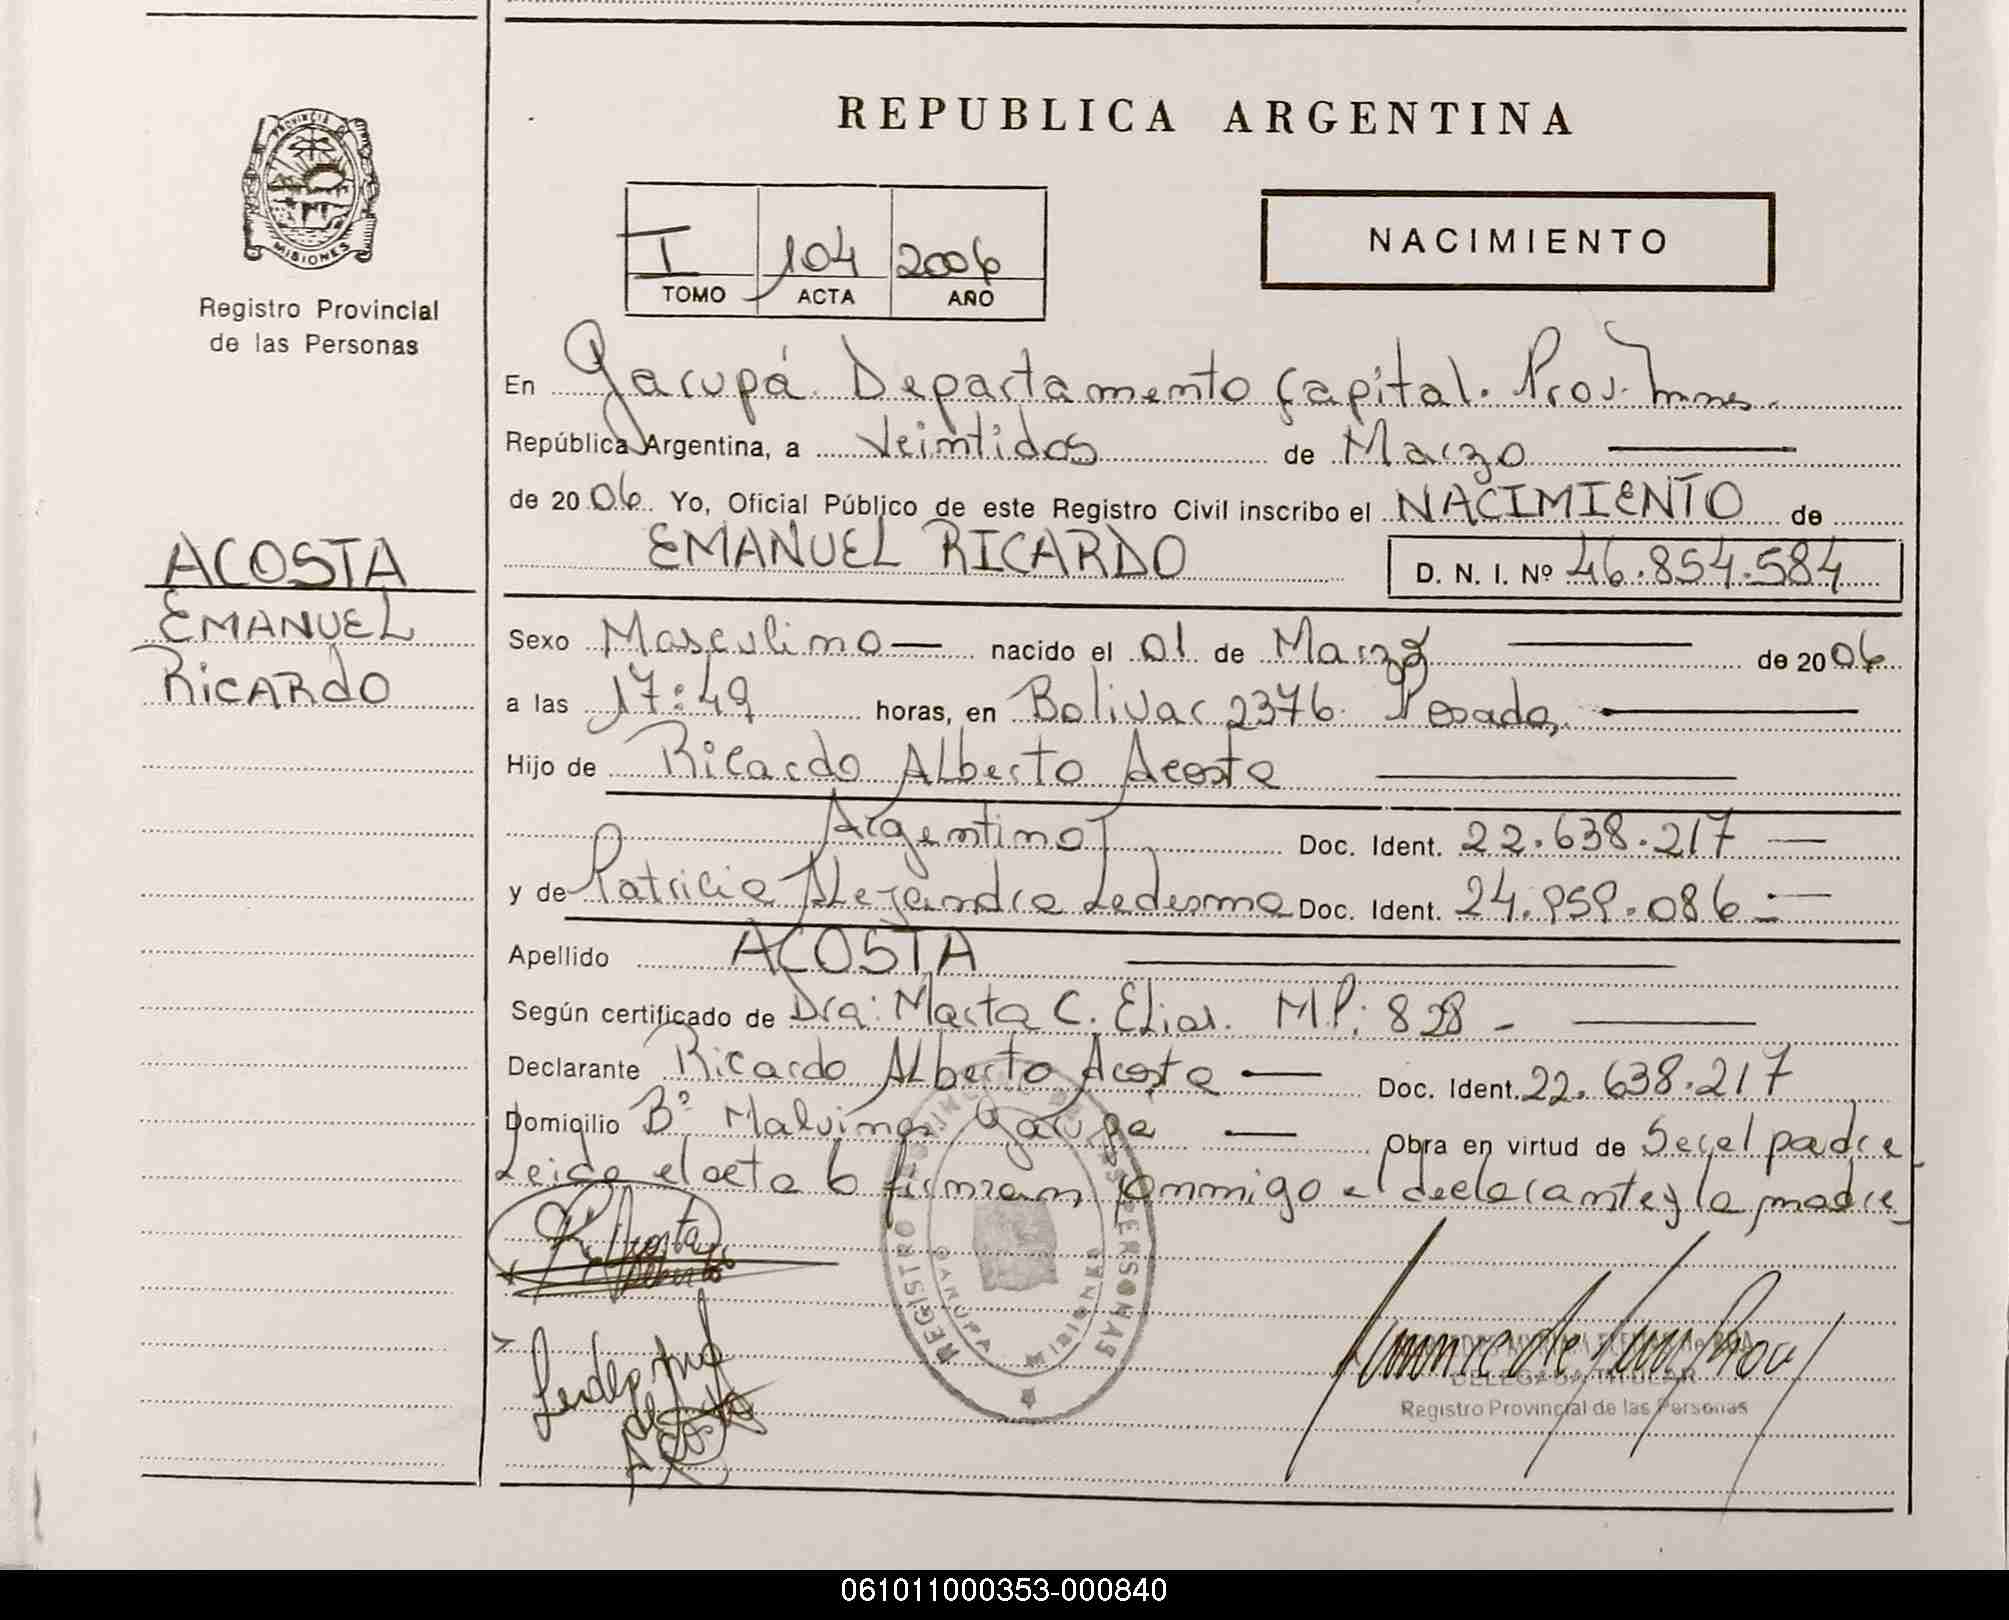 REPUBLICA ARGENTINA
PROVINCIA D
MISIONES
Registro Provincial
de las Personas
I 104 2006
TOMO ACTA AÑO
NACIMIENTO
En Garupá. Departamento Capital. Prov. Mnes.
República Argentina, a Veintidos de Marzo
de 2006. Yo, Oficial Público de este Registro Civil inscribo el NACIMIENTO de
EMANUEL RICARDO D. N. I. Nº 46.854.584
ACOSTA
EMANUEL
RICARDO
Sexo Masculino nacido el 01 de Marzo de 2006
a las 17:49 horas, en Bolivar 2376. Posadas
Hijo de Ricardo Alberto Acosta
Argentino Doc. Ident. 22.638.217
y de Patricia Alejandra Ledesma Doc. Ident. 24.959.086
Apellido ACOSTA
Según certificado de Dra: Marta C. Elias. M.P: 828
Declarante Ricardo Alberto Acosta Doc. Ident. 22.638.217
Domicilio Bº Malvinas Garupa Obra en virtud de Ser el padre
Leida el acta la firman conmigo el declarante y la madre
R. Acosta
Alberto
Ledesma
de
Acosta
REGISTRO PROVINCIAL DE LAS PERSONAS
GARUPA MISIONES
DELEGADA TITULAR
Registro Provincial de las Personas
061011000353-000840